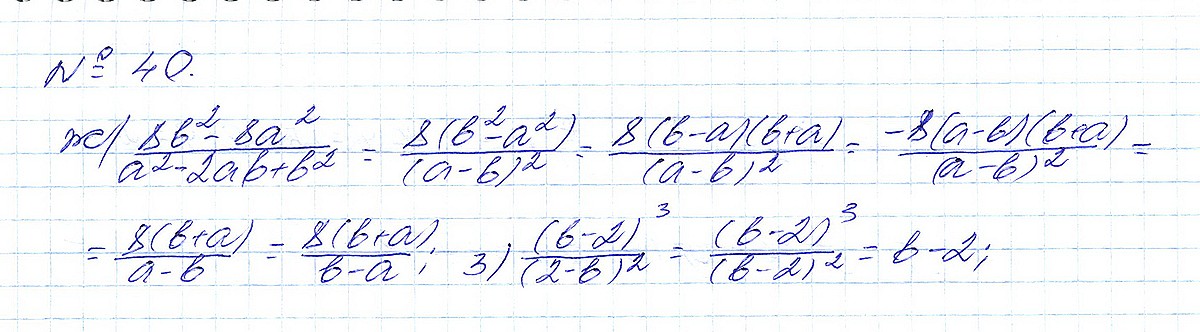 № 40.
ж) (8b² - 8a²)/(a² - 2ab + b²) = 8(b² - a²)/(a - b)² = 8(b - a)(b + a)/(a - b)² = -8(a - b)(b + a)/(a - b)² =
= 8(b + a)/(a - b) = 8(b + a)/(b - a); з) (b - 2)³/(2 - b)² = (b - 2)³/(b - 2)² = b - 2;